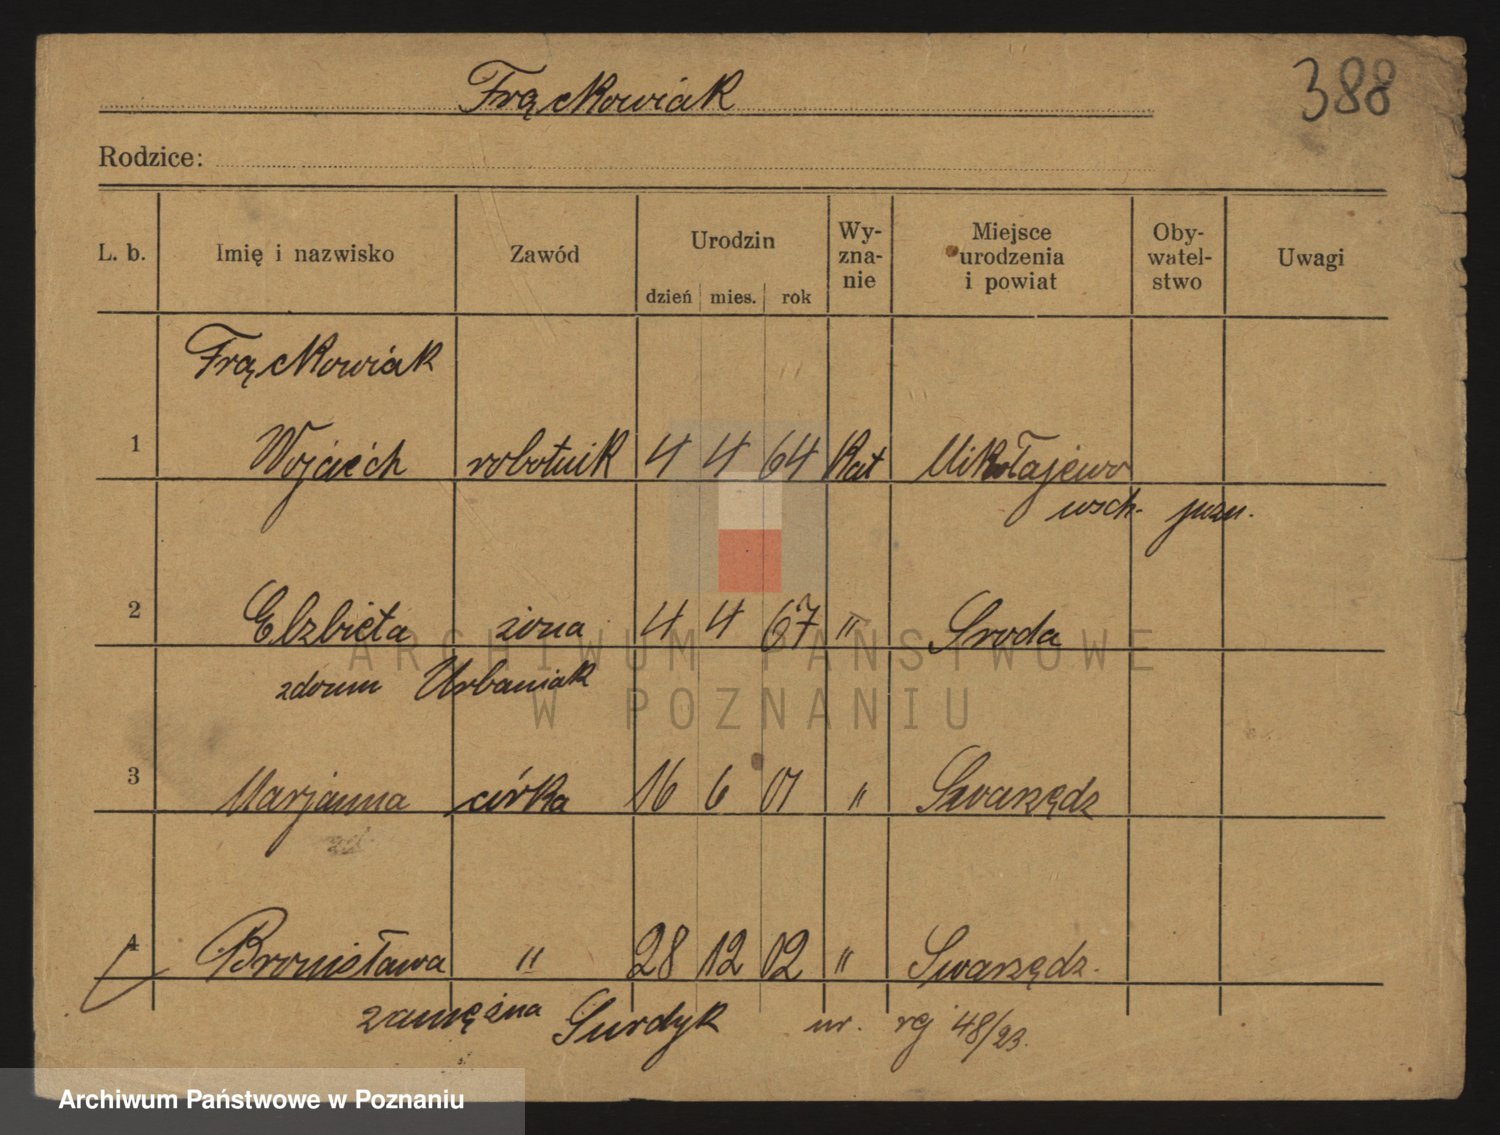 Frąckowiak
388
Rodzice:
L. b. Imię i nazwisko Zawód Urodzin dzień mies. rok Wy-zna-nie Miejsce urodzenia i powiat Oby-watel-stwo Uwagi
Frąckowiak
1 Wojciech robotnik 4 4 64 Kat Mikołajewo
wsch. pozn.
2 Elzbieta żona 4 4 67 " Sroda
zdoum Urbaniak
3 Marjanna córka 16 6 01 " Swarzędz
4 Bronisława " 28 12 02 " Swarzędz.
zamężna Surdyk nr. rej 48/23.
ARCHIWUM PAŃSTWOWE
W POZNANIU
Archiwum Państwowe w Poznaniu